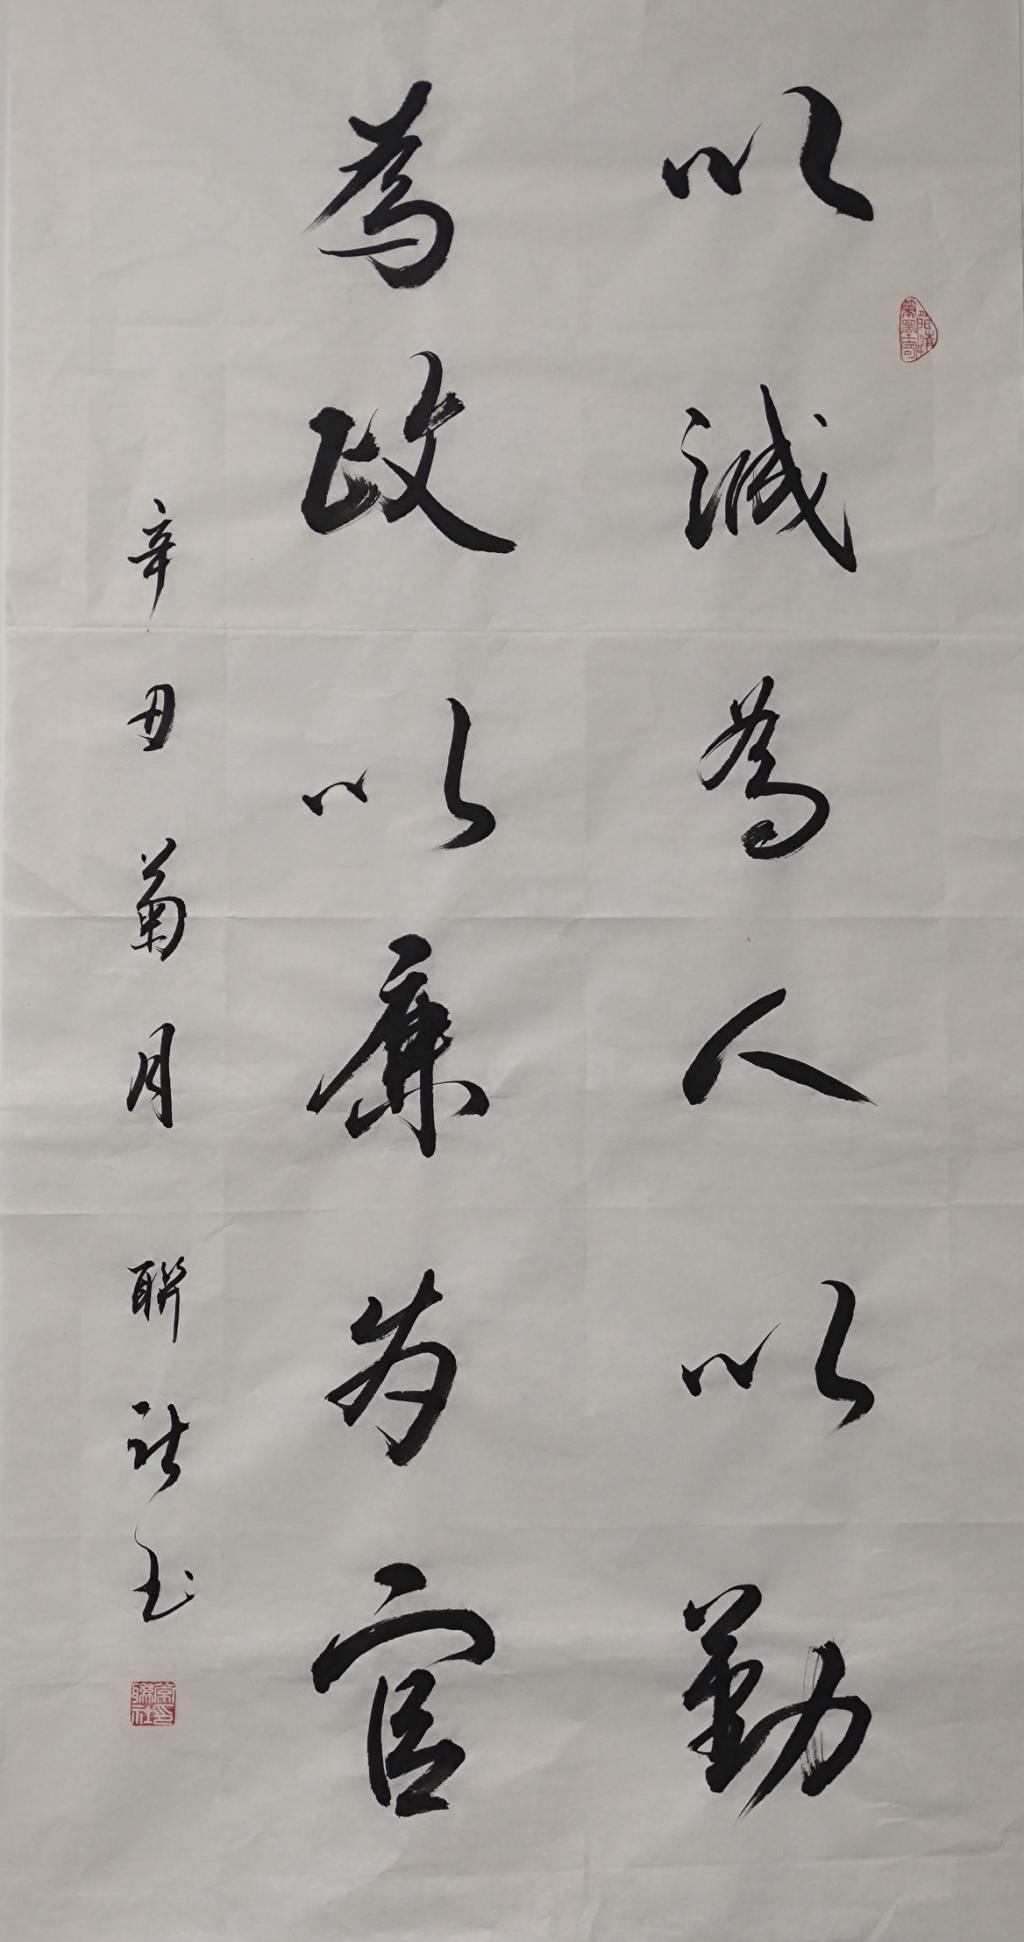 以诚為人以勤
為政以廉为官
辛丑菊月 聯社书